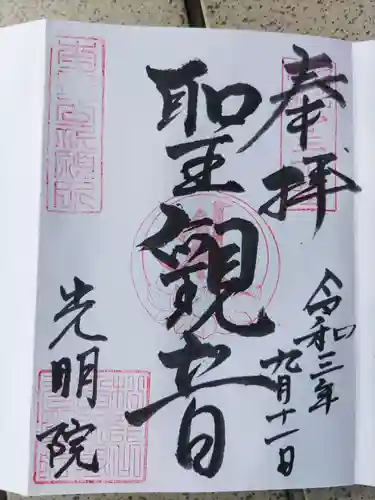 奉拝
令和三年
九月十一日
聖觀音
光明院